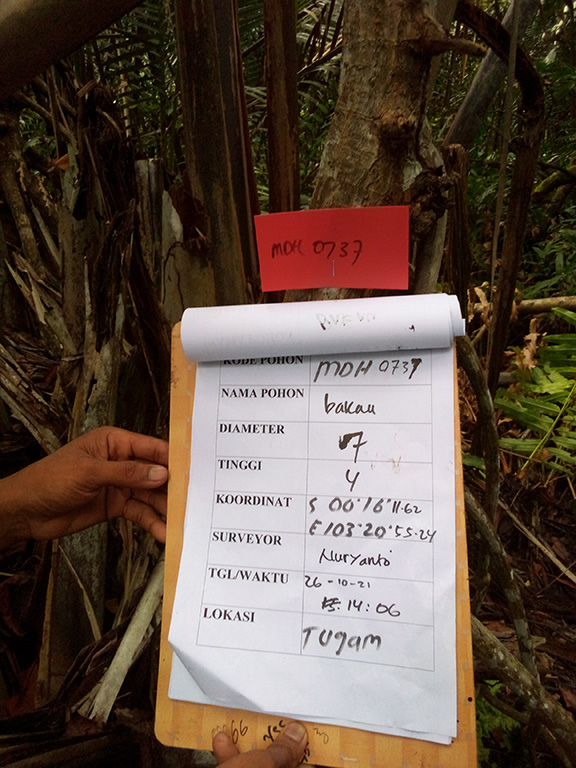 MDH 0737
KODE POHON MDH 0737
NAMA POHON bakau
DIAMETER 7
TINGGI 4
KOORDINAT S 00°16'11.62
E103°20'55.24
SURVEYOR Nuryanto
TGL/WAKTU 26-10-21
14:06
LOKASI TUgam